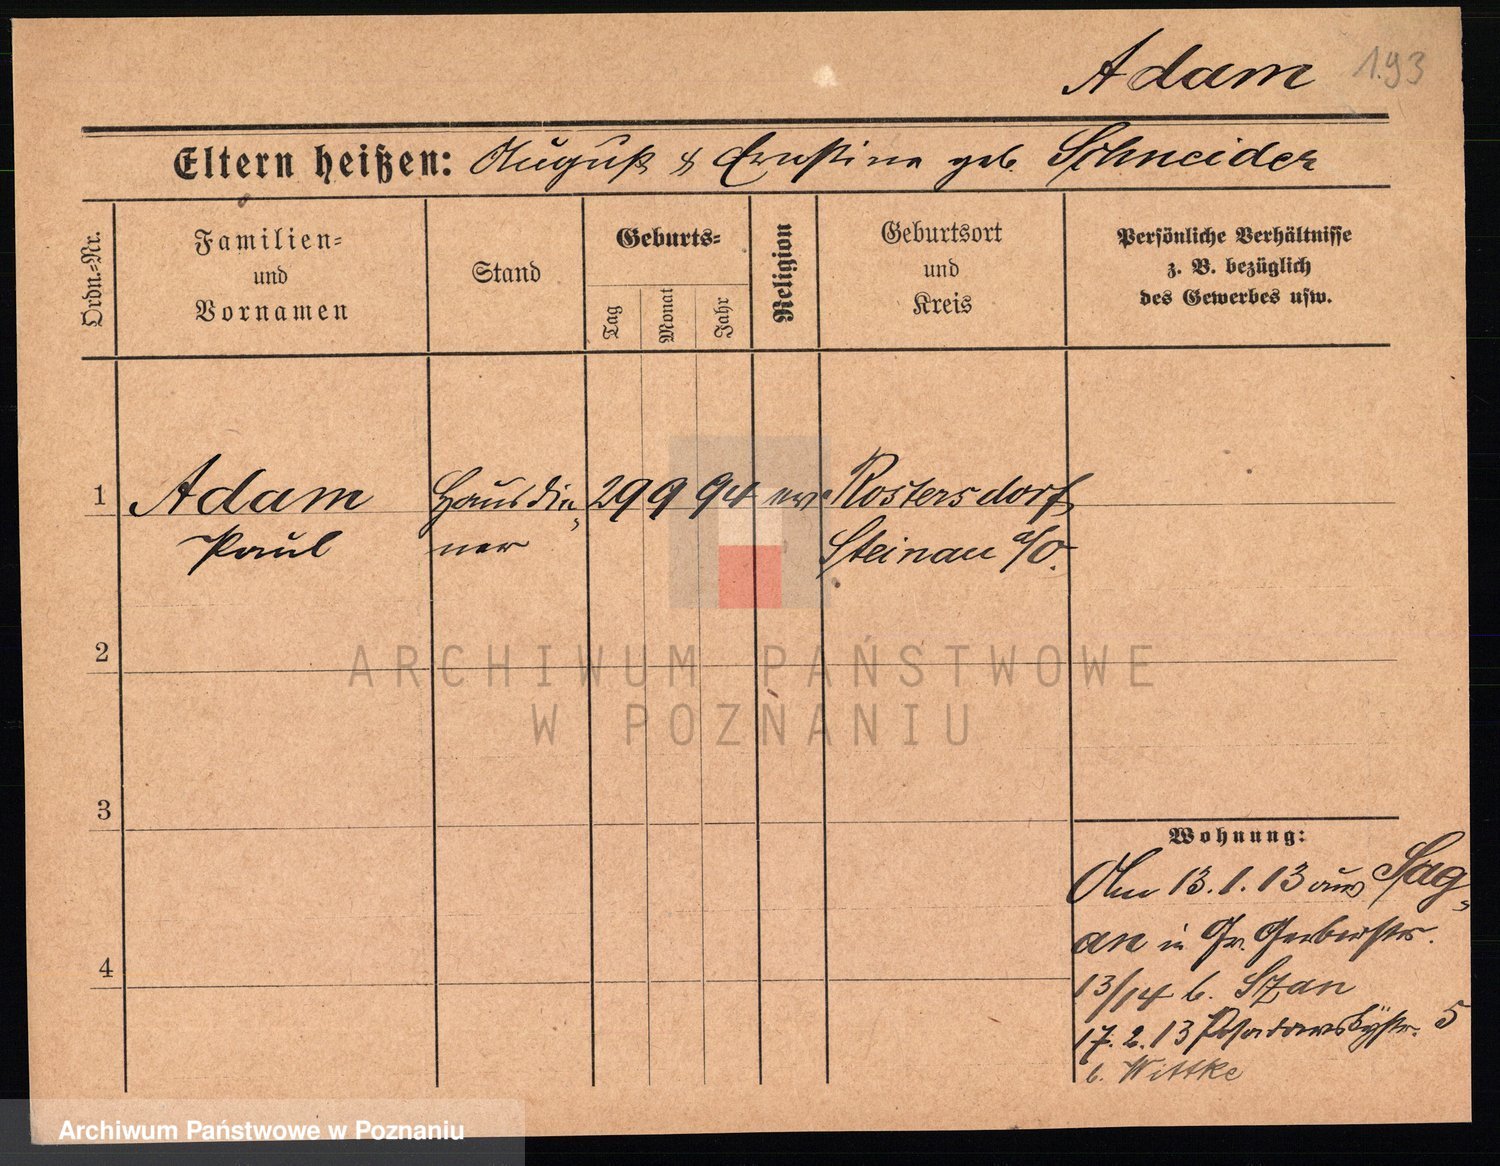 Adam 193
Eltern heißen: August & Ernstine geb. Schneider
Ordn.-Nr.
Familien-
und
Vornamen
Stand
Geburts-
Tag
Monat
Jahr
Religion
Geburtsort
und
Kreis
Persönliche Verhältnisse
z. B. bezüglich
des Gewerbes usw.
1 Adam Hausdie- 29 9 94 ev. Rostersdorf
Paul ner Steinau a/O.
2
ARCHIWUM PAŃSTWOWE
W POZNANIU
3
4
Wohnung:
Am 13.1.13 aus Sag-
an in Gr. Gerberstr.
13/14 b. Szan
17.2.13 Posadowskystr. 5
b. Wittke
Archiwum Państwowe w Poznaniu